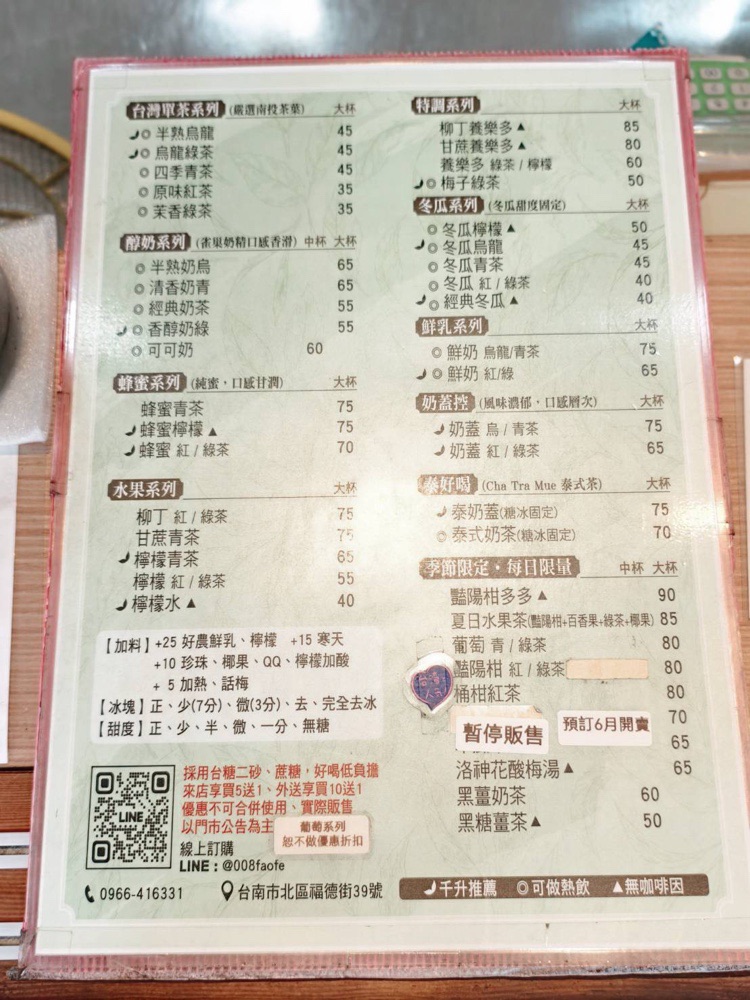 台灣單茶系列 (嚴選南投茶葉) 大杯
◎ 半熟烏龍 45
◎ 烏龍綠茶 45
◎ 四季青茶 45
◎ 原味紅茶 35
◎ 茉香綠茶 35
醇奶系列 (雀巢奶精口感香滑) 中杯 大杯
◎ 半熟奶烏 65
◎ 清香奶青 65
◎ 經典奶茶 55
◎ 香醇奶綠 55
◎ 可可奶 60
蜂蜜系列 (純蜜，口感甘潤) 大杯
蜂蜜青茶 75
蜂蜜檸檬▲ 75
蜂蜜 紅 / 綠茶 70
水果系列 大杯
柳丁 紅 / 綠茶 75
甘蔗青茶 75
檸檬青茶 65
檸檬 紅 / 綠茶 55
檸檬水▲ 40
【加料】+25 好農鮮乳、檸檬 +15 寒天
+10 珍珠、椰果、QQ、檸檬加酸
+ 5 加熱、話梅
【冰塊】正、少(7分)、微(3分)、去、完全去冰
【甜度】正、少、半、微、一分、無糖
LINE
採用台糖二砂、蔗糖，好喝低負擔
來店享買5送1、外送享買10送1
優惠不可合併使用、實際販售
以門市公告為主
葡萄系列
恕不做優惠折扣
線上訂購
LINE：@008faofe
0966-416331 台南市北區福德街39號
特調系列 大杯
柳丁養樂多▲ 85
甘蔗養樂多▲ 80
養樂多 綠茶 / 檸檬 60
◎ 梅子綠茶 50
冬瓜系列 (冬瓜甜度固定) 大杯
◎ 冬瓜檸檬▲ 50
◎ 冬瓜烏龍 45
◎ 冬瓜青茶 45
◎ 冬瓜 紅 / 綠茶 40
◎ 經典冬瓜▲ 40
鮮乳系列 大杯
◎ 鮮奶 烏龍/青茶 75
◎ 鮮奶 紅/綠 65
奶蓋控 (風味濃郁．口感層次) 大杯
奶蓋 烏 / 青茶 75
奶蓋 紅 / 綠茶 65
泰好喝 (Cha Tra Mue 泰式茶) 大杯
泰奶蓋(糖冰固定) 75
◎ 泰式奶茶(糖冰固定) 70
季節限定．每日限量 中杯 大杯
豔陽柑多多▲ 90
夏日水果茶(豔陽柑+百香果+綠茶+椰果) 85
葡萄 青 / 綠茶 80
豔陽柑 紅 / 綠茶 80
桶柑紅茶 80
暫停販售 預訂6月開賣 70
65
洛神花酸梅湯▲ 65
黑薑奶茶 60
黑糖薑茶▲ 50
千升推薦 ◎可做熱飲 ▲無咖啡因